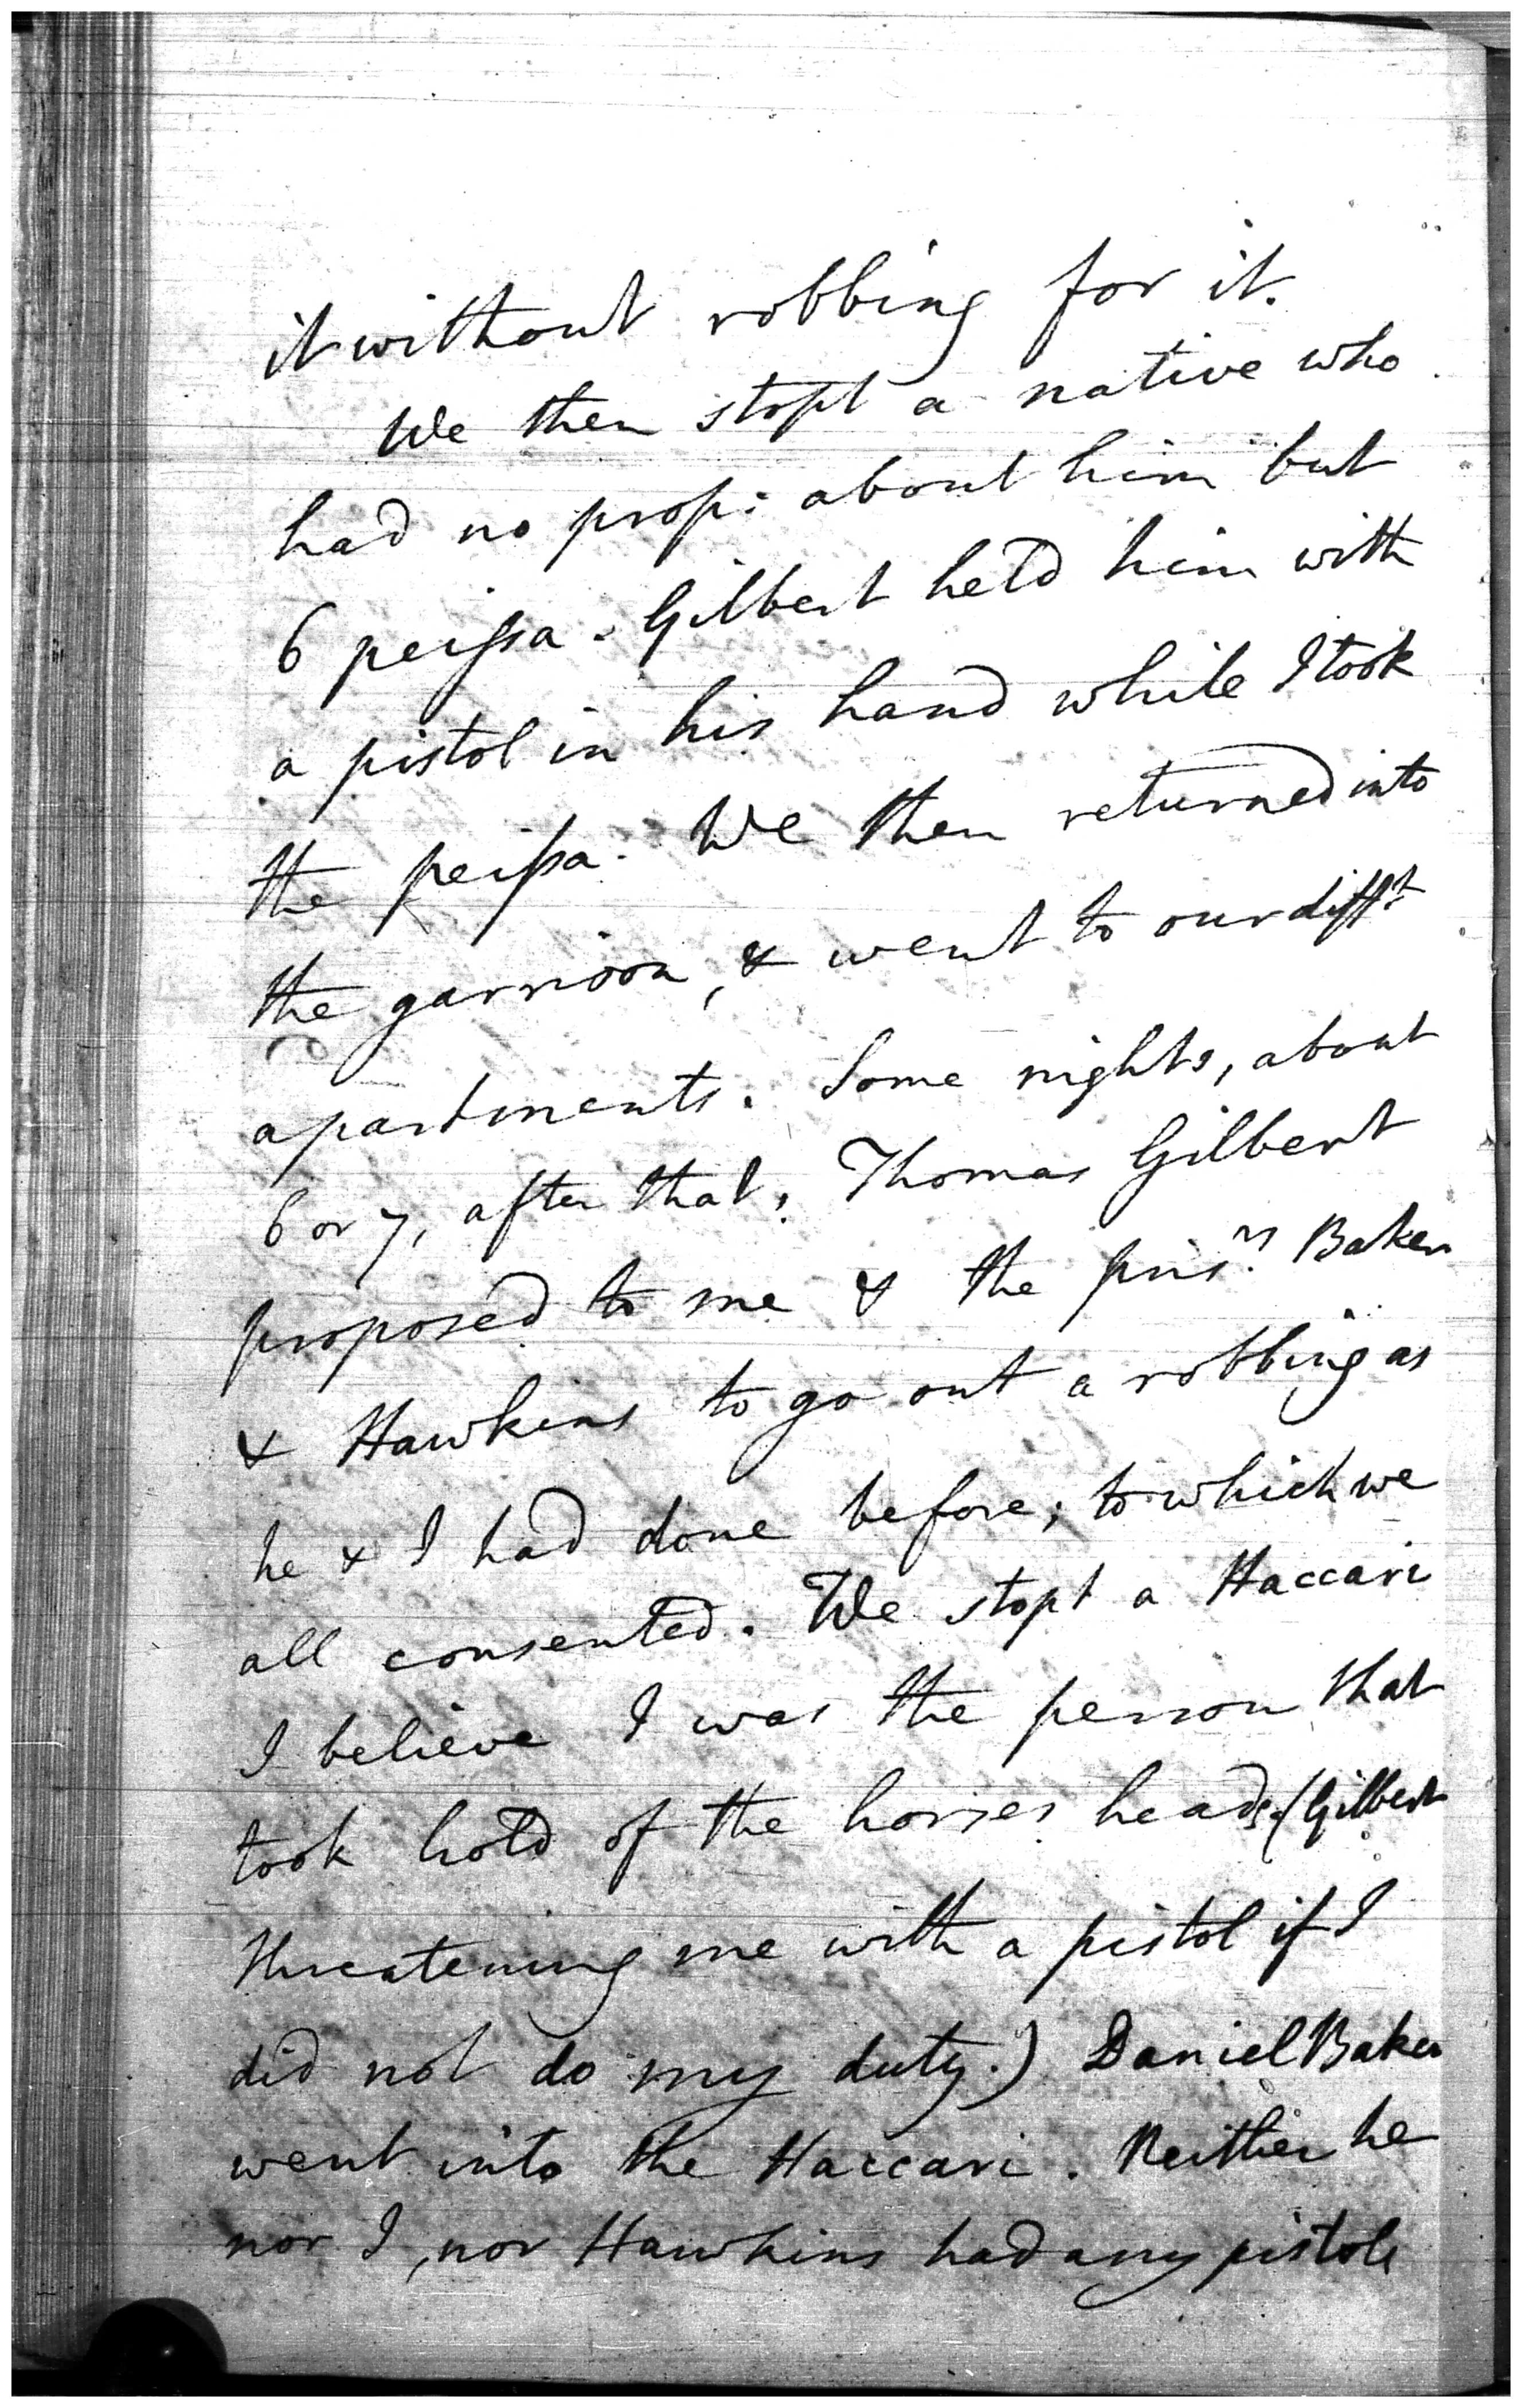 it without robbing for it.
We then stopt a native who
had no prop: about him but
6 peissa. Gilbert held him with
a pistol in his hand while I took
the peissa. We then returned into
the garrison, & went to our difft
apartments. Some nights, about
6 or 7, after that, Thomas Gilbert
proposed to me & the prisrs Baker
& Hawkins to go out a robbing as
he & I had done before; to which we
all consented. We stopt a Haccari
I believe I was the person that
took hold of the horses heads. (Gilbert
threatening me with a pistol if I
did not do my duty.) Daniel Baker
went into the Haccari. Neither he
nor I, nor Hawkins had any pistols